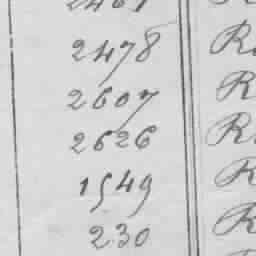 2478 R
2607 R
2626 R
1549 R
230 R